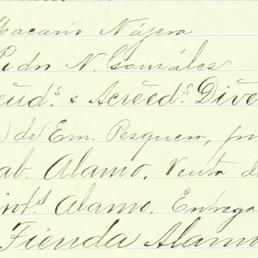 Macario Nájera
Pedro N. González
eud.s & Acreed.s Dive
) de Em. Pesquera, pr
ab. Alamo. Venta d
int.s Alamo. Entrega
Tienda Alamo